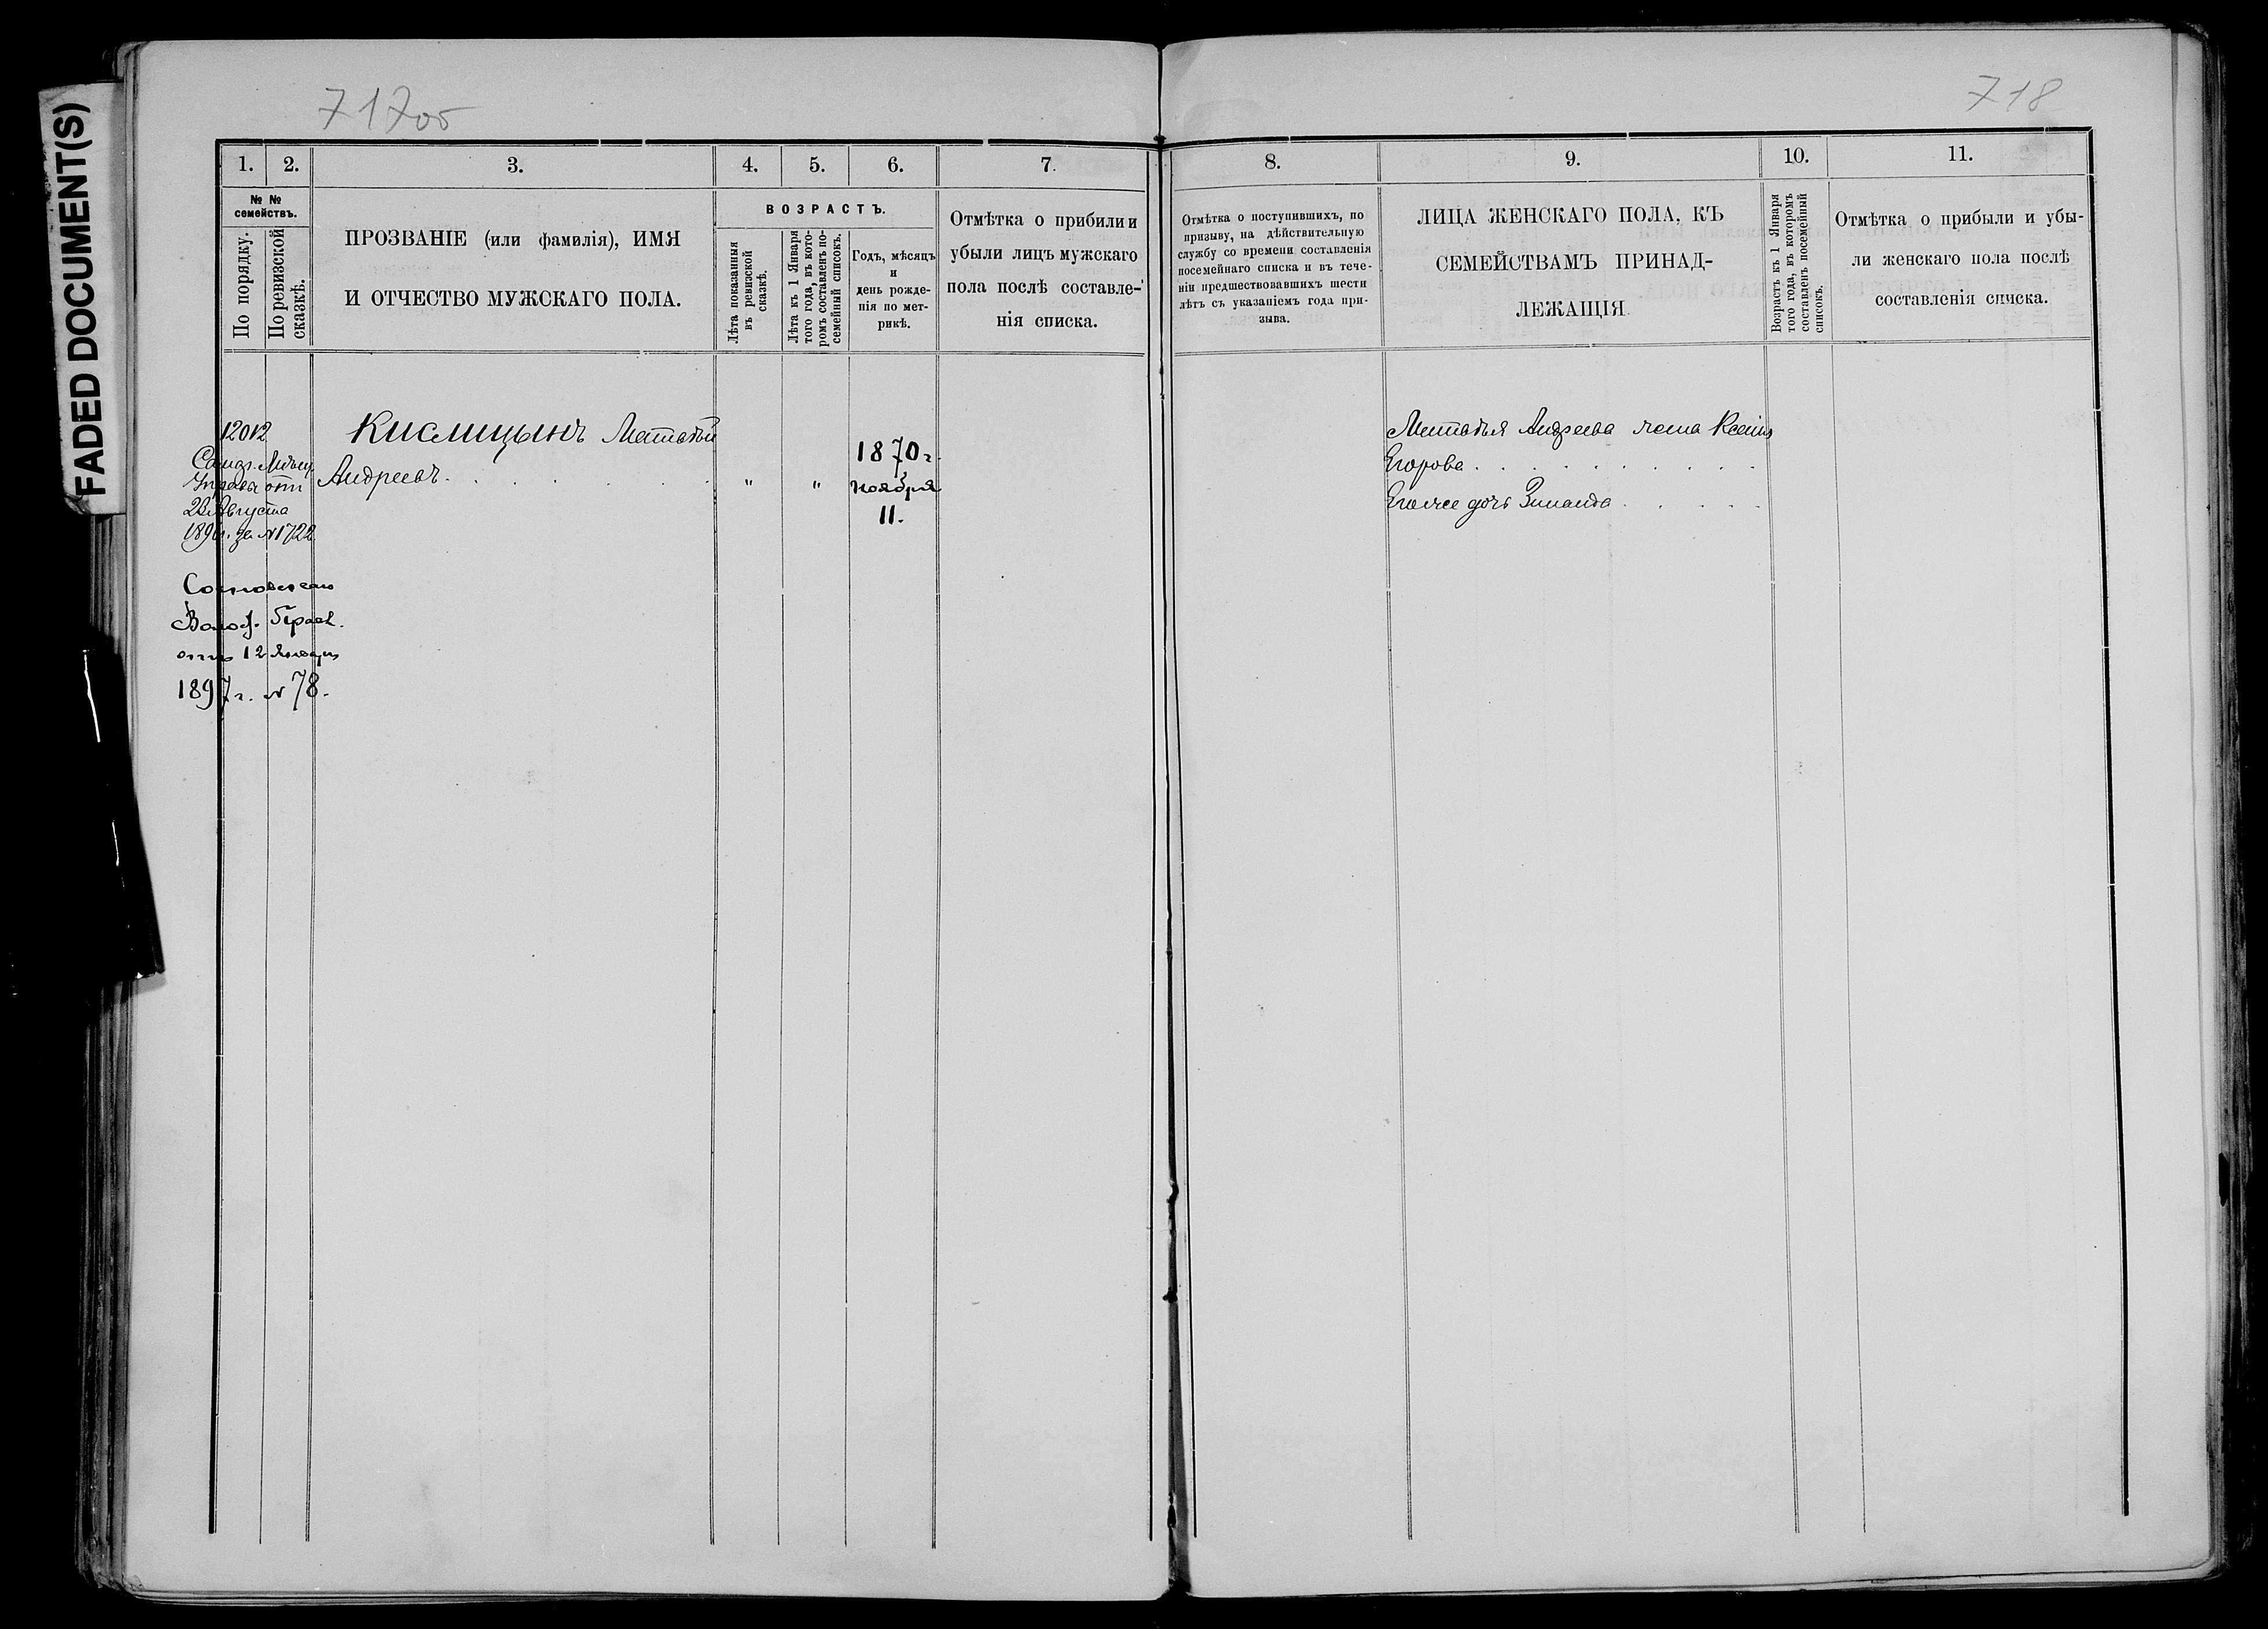 FADED DOCUMENT(S)
717об
718
1. 2. 3. 4. 5. 6. 7.
№ № семействъ.
По порядку.
По ревизской сказкѣ.
ПРОЗВАНІЕ (или фамилія), ИМЯ
И ОТЧЕСТВО МУЖСКАГО ПОЛА.
ВОЗРАСТЪ.
Лѣта показанныя
въ ревизской
сказкѣ.
Лѣта къ 1 Января
того года, въ кото-
ромъ составленъ по-
семейный списокъ.
Годъ, мѣсяцъ
и
день рожде-
нія по мет-
рикѣ.
Отмѣтка о прибыли и
убыли лицъ мужскаго
пола послѣ составле-
нія списка.
12012
Кислицынъ Матвѣй
Андреевъ.
" "
1870 г.
Ноября
11.
Управы отъ
Августа
№ 1722
отъ 12 Января
1897 г. № 78.
8. 9. 10. 11.
Отмѣтка о поступившихъ, по
призыву, на дѣйствительную
службу со времени составленія
посемейнаго списка и въ тече-
ніи предшествовавшихъ шести
лѣтъ съ указаніемъ года при-
зыва.
ЛИЦА ЖЕНСКАГО ПОЛА, КЪ
СЕМЕЙСТВАМЪ ПРИНАД-
ЛЕЖАЩІЯ
Возрастъ къ 1 Января
того года, въ которомъ
составленъ посемейный
списокъ.
Отмѣтка о прибыли и убы-
ли женскаго пола послѣ
составленія списка.
Матвѣя Андреева жена Ксенія
Егорова
Его же дочь Зинаида